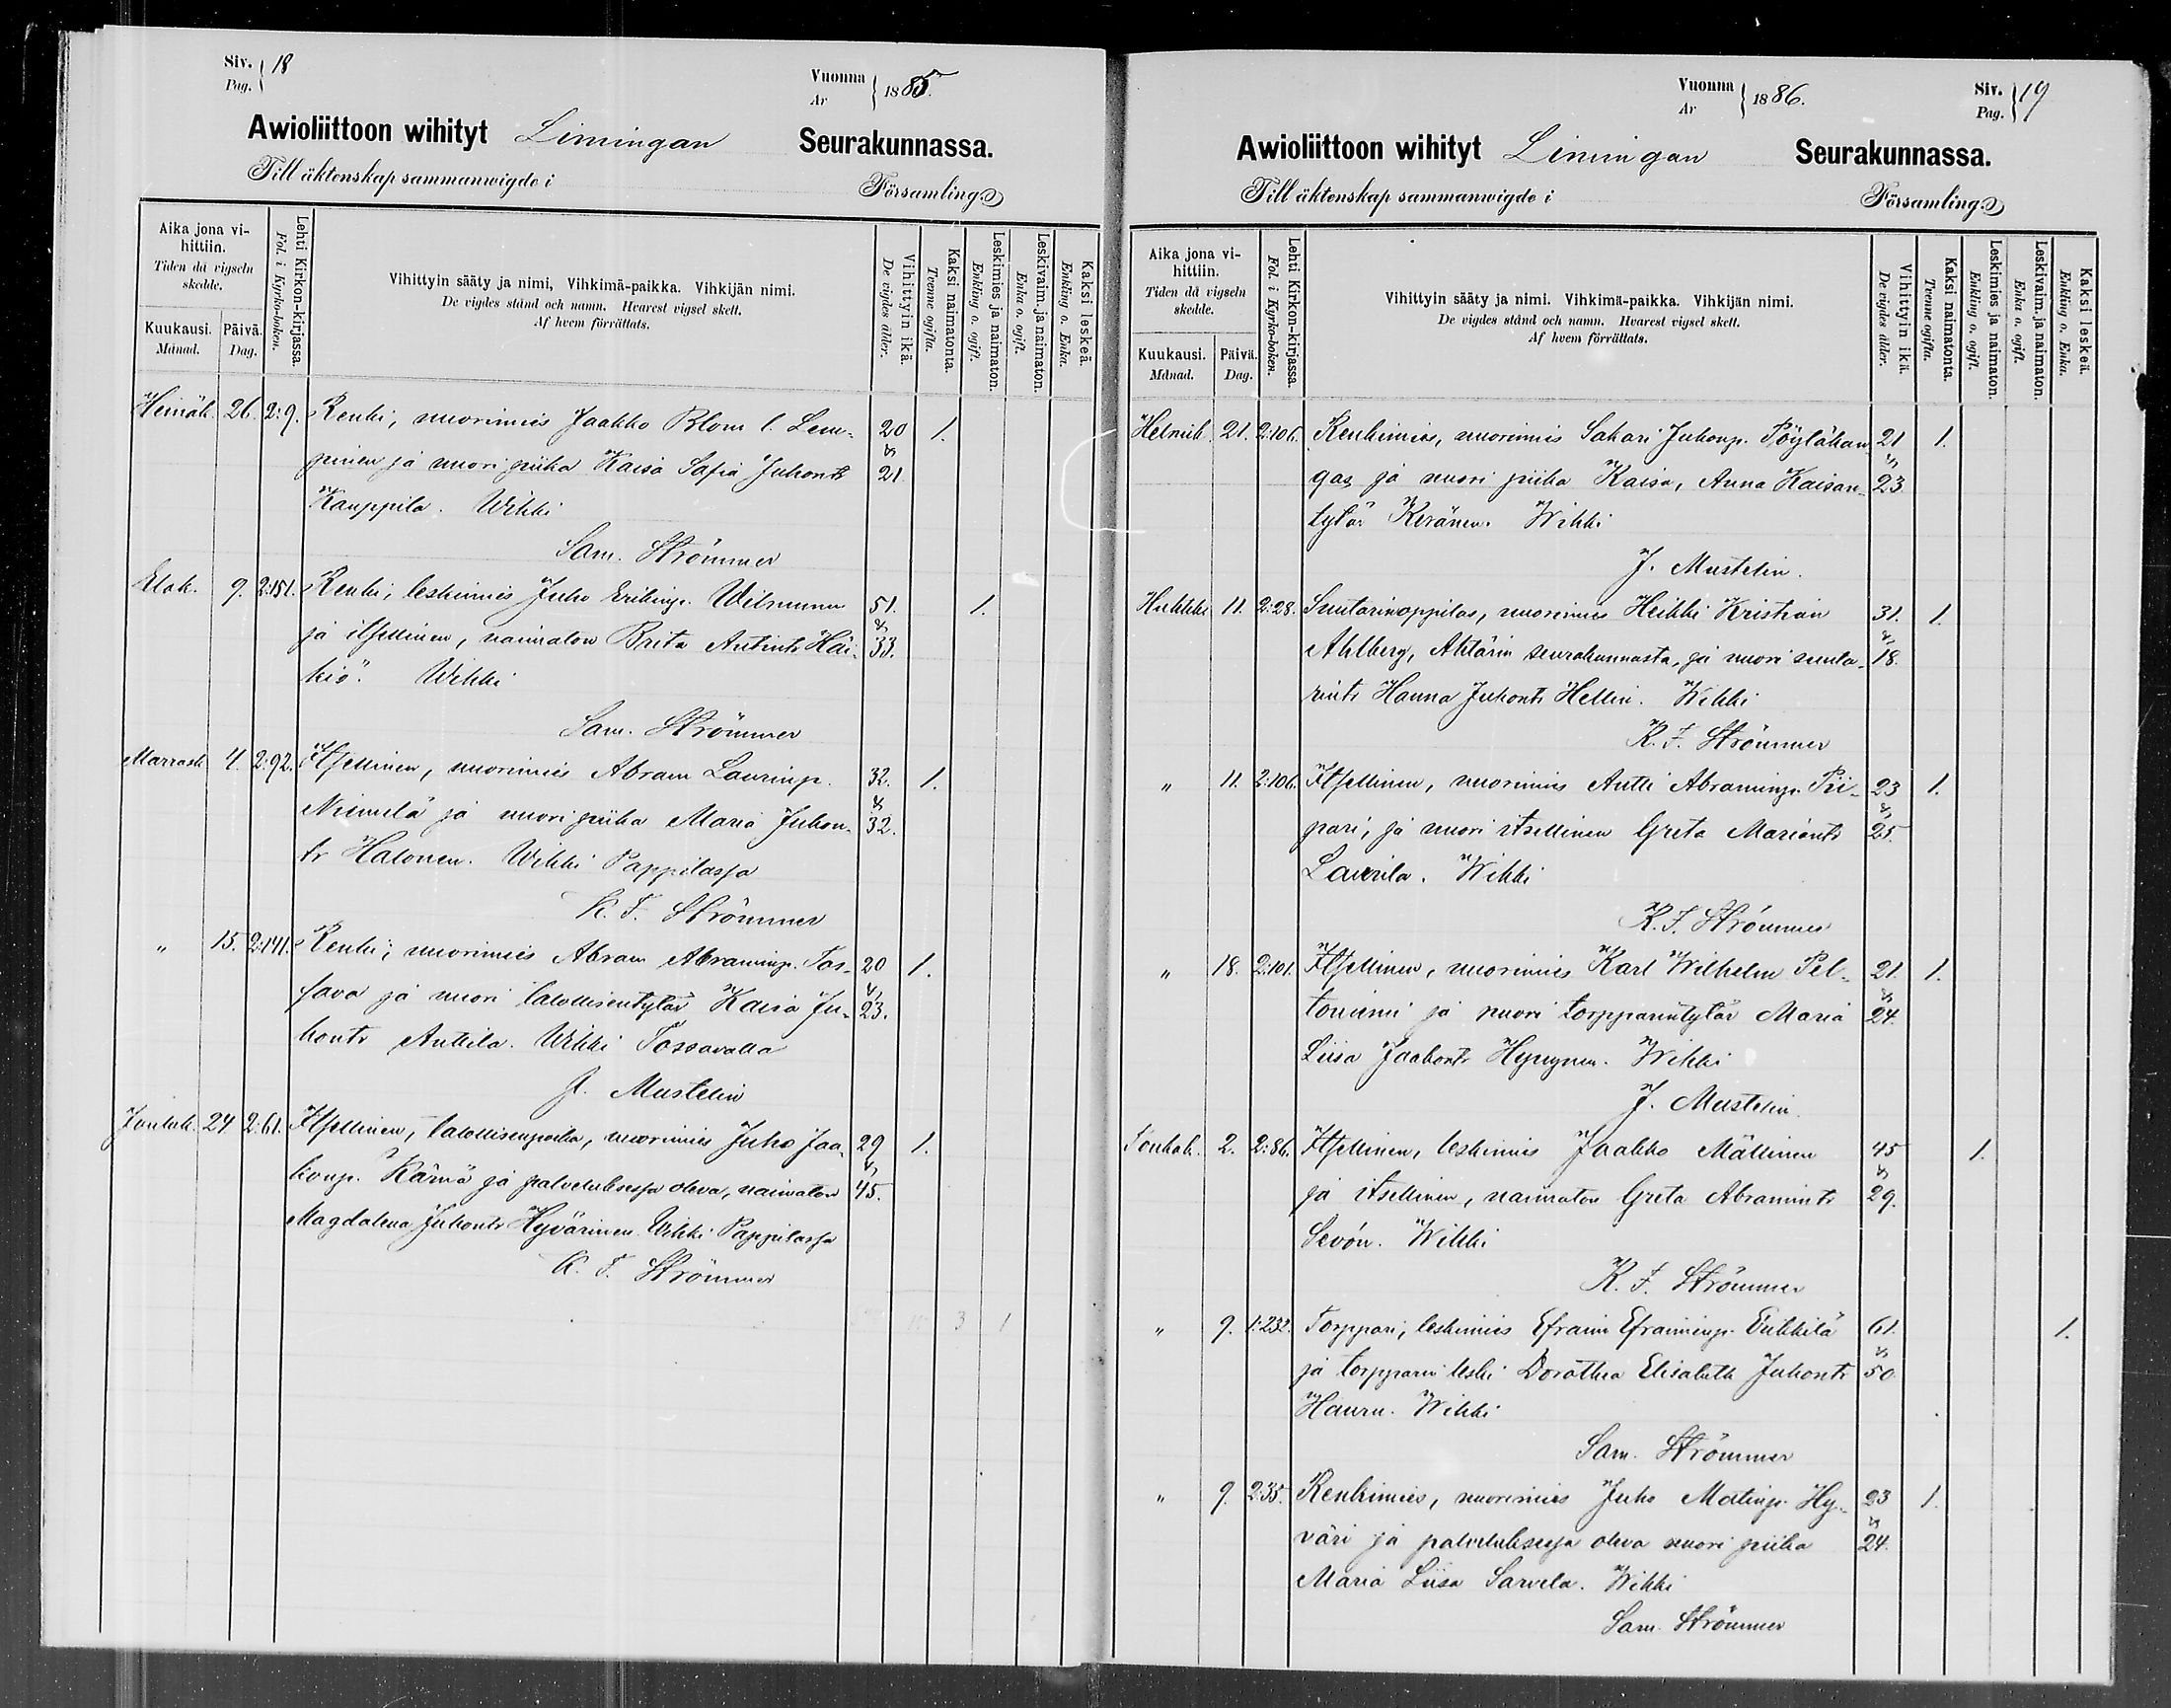 Siv. 18
Pag.
Vuonna 1885.
Ar
Awioliittoon wihityt Limingan Seurakunnassa.
Till äktenskap sammanwigde i Församling.
Aika jona vihittiin.
Tiden då vigseln skedde.
Kuukausi. Månad.
Päivä. Dag.
Lehti Kirkon-kirjassa.
Fol. i Kyrko-boken.
Vihittyin sääty ja nimi, Vihkimä-paikka. Vihkijän nimi.
De vigdes stånd och namn. Hvarest vigsel skett.
Af hvem förrättats.
Vihittyin ikä.
De vigdes ålder.
Kaksi naimatonta.
Tvenne ogifta.
Leskimies ja naimaton.
Enkling o. ogift.
Leskivaim. ja naimaton.
Enka o. ogift.
Kaksi leskeä.
Enkling o. Enka.
Heinäk. 26. 2:9. Renki, nuorimies Jaakko Blom l. Lem- 20 1.
pinen ja nuori piika Kaisa Sofia Juhontr 21
Kauppila. Wihki
Sam. Strömmer
Elok. 9. 2:151. Renki, leskimies Juho Erikinp. Wilmunen 51. 1.
ja itsellinen, naimaton Brita Antintr Häi- 33.
kiö. Wihki
Sam. Strömmer
Marrask. 4. 2:92. Itsellinen, nuorimies Abram Laurinp. 32. 1.
Niemelä ja nuori piika Maria Juhon- 32.
tr Halonen. Wihki Pappilassa
K. F. Strömmer
" 15. 2:141. Renki, nuorimies Abram Abraminp. Tos- 20 1.
sava ja nuori talollisentytär Kaisa Ju- 23.
hontr Anttila. Wihki Tossavalla
J. Mustelin
Jouluk. 24. 2:61. Itsellinen, talollisenpoika, nuorimies Juho Jaa- 29 1.
konp. Kärnä ja palveluksessa oleva, naimaton 45.
Magdalena Juhontr Hyvärinen. Wihki Pappilassa
K. F. Strömmer
3 1
Vuonna 1886.
Ar
Siv. 19
Pag.
Awioliittoon wihityt Limingan Seurakunnassa.
Till äktenskap sammanwigde i Församling.
Aika jona vihittiin.
Tiden då vigseln skedde.
Kuukausi. Månad.
Päivä. Dag.
Lehti Kirkon-kirjassa.
Fol. i Kyrko-boken.
Vihittyin sääty ja nimi. Vihkimä-paikka. Vihkijän nimi.
De vigdes stånd och namn. Hvarest vigsel skett.
Af hvem förrättats.
Vihittyin ikä.
De vigdes ålder.
Kaksi naimatonta.
Tvenne ogifta.
Leskimies ja naimaton.
Enkling o. ogift.
Leskivaim. ja naimaton.
Enka o. ogift.
Kaksi leskeä.
Enkling o. Enka.
Helmik. 21. 2:106. Renkimies, nuorimies Sakari Juhonp. Pöylähan 21 1.
gas ja nuori piika Kaisa, Anna Kaisan- 23
tytär Keränen. Wihki
J. Mustelin.
Huhtik. 11. 2:28. Suutarinoppilas, nuorimies Heikki Kristian 31. 1.
Ahlberg, Ahtärin seurakunnasta, ja nuori suuta- 18.
rintr Hanna Juhontr Hellin. Wihki
K. F. Strömmer
" 11. 2:106. Itsellinen, nuorimies Antti Abraminp. Pii- 23 1.
pari, ja nuori itsellinen Greta Mariantr 25.
Laurila. Wihki
K. F. Strömmer
" 18. 2:101. Itsellinen, nuorimies Karl Wilhelm Pel- 21. 1.
toniemi ja nuori torpparintytär Maria 24.
Liisa Jaakontr Hyrynen. Wihki
J. Mustelin.
Toukok. 2. 2:86. Itsellinen, leskimies Jaakko Mällinen 45 1.
ja itsellinen, naimaton Greta Abramintr 29.
Sevón. Wihki
K. F. Strömmer
" 9. 1:232. Torppari, leskimies Efraim Efraiminp. Erkkilä 61. 1.
ja torpparin leski Dorothea Elisabeth Juhontr 50
Hauru. Wihki
Sam. Strömmer
" 9. 2:35. Renkimies, nuorimies Juho Matinp. Hy- 23 1.
väri ja palveluksessa oleva nuori piika 24.
Maria Liisa Sarvela. Wihki
Sam. Strömmer